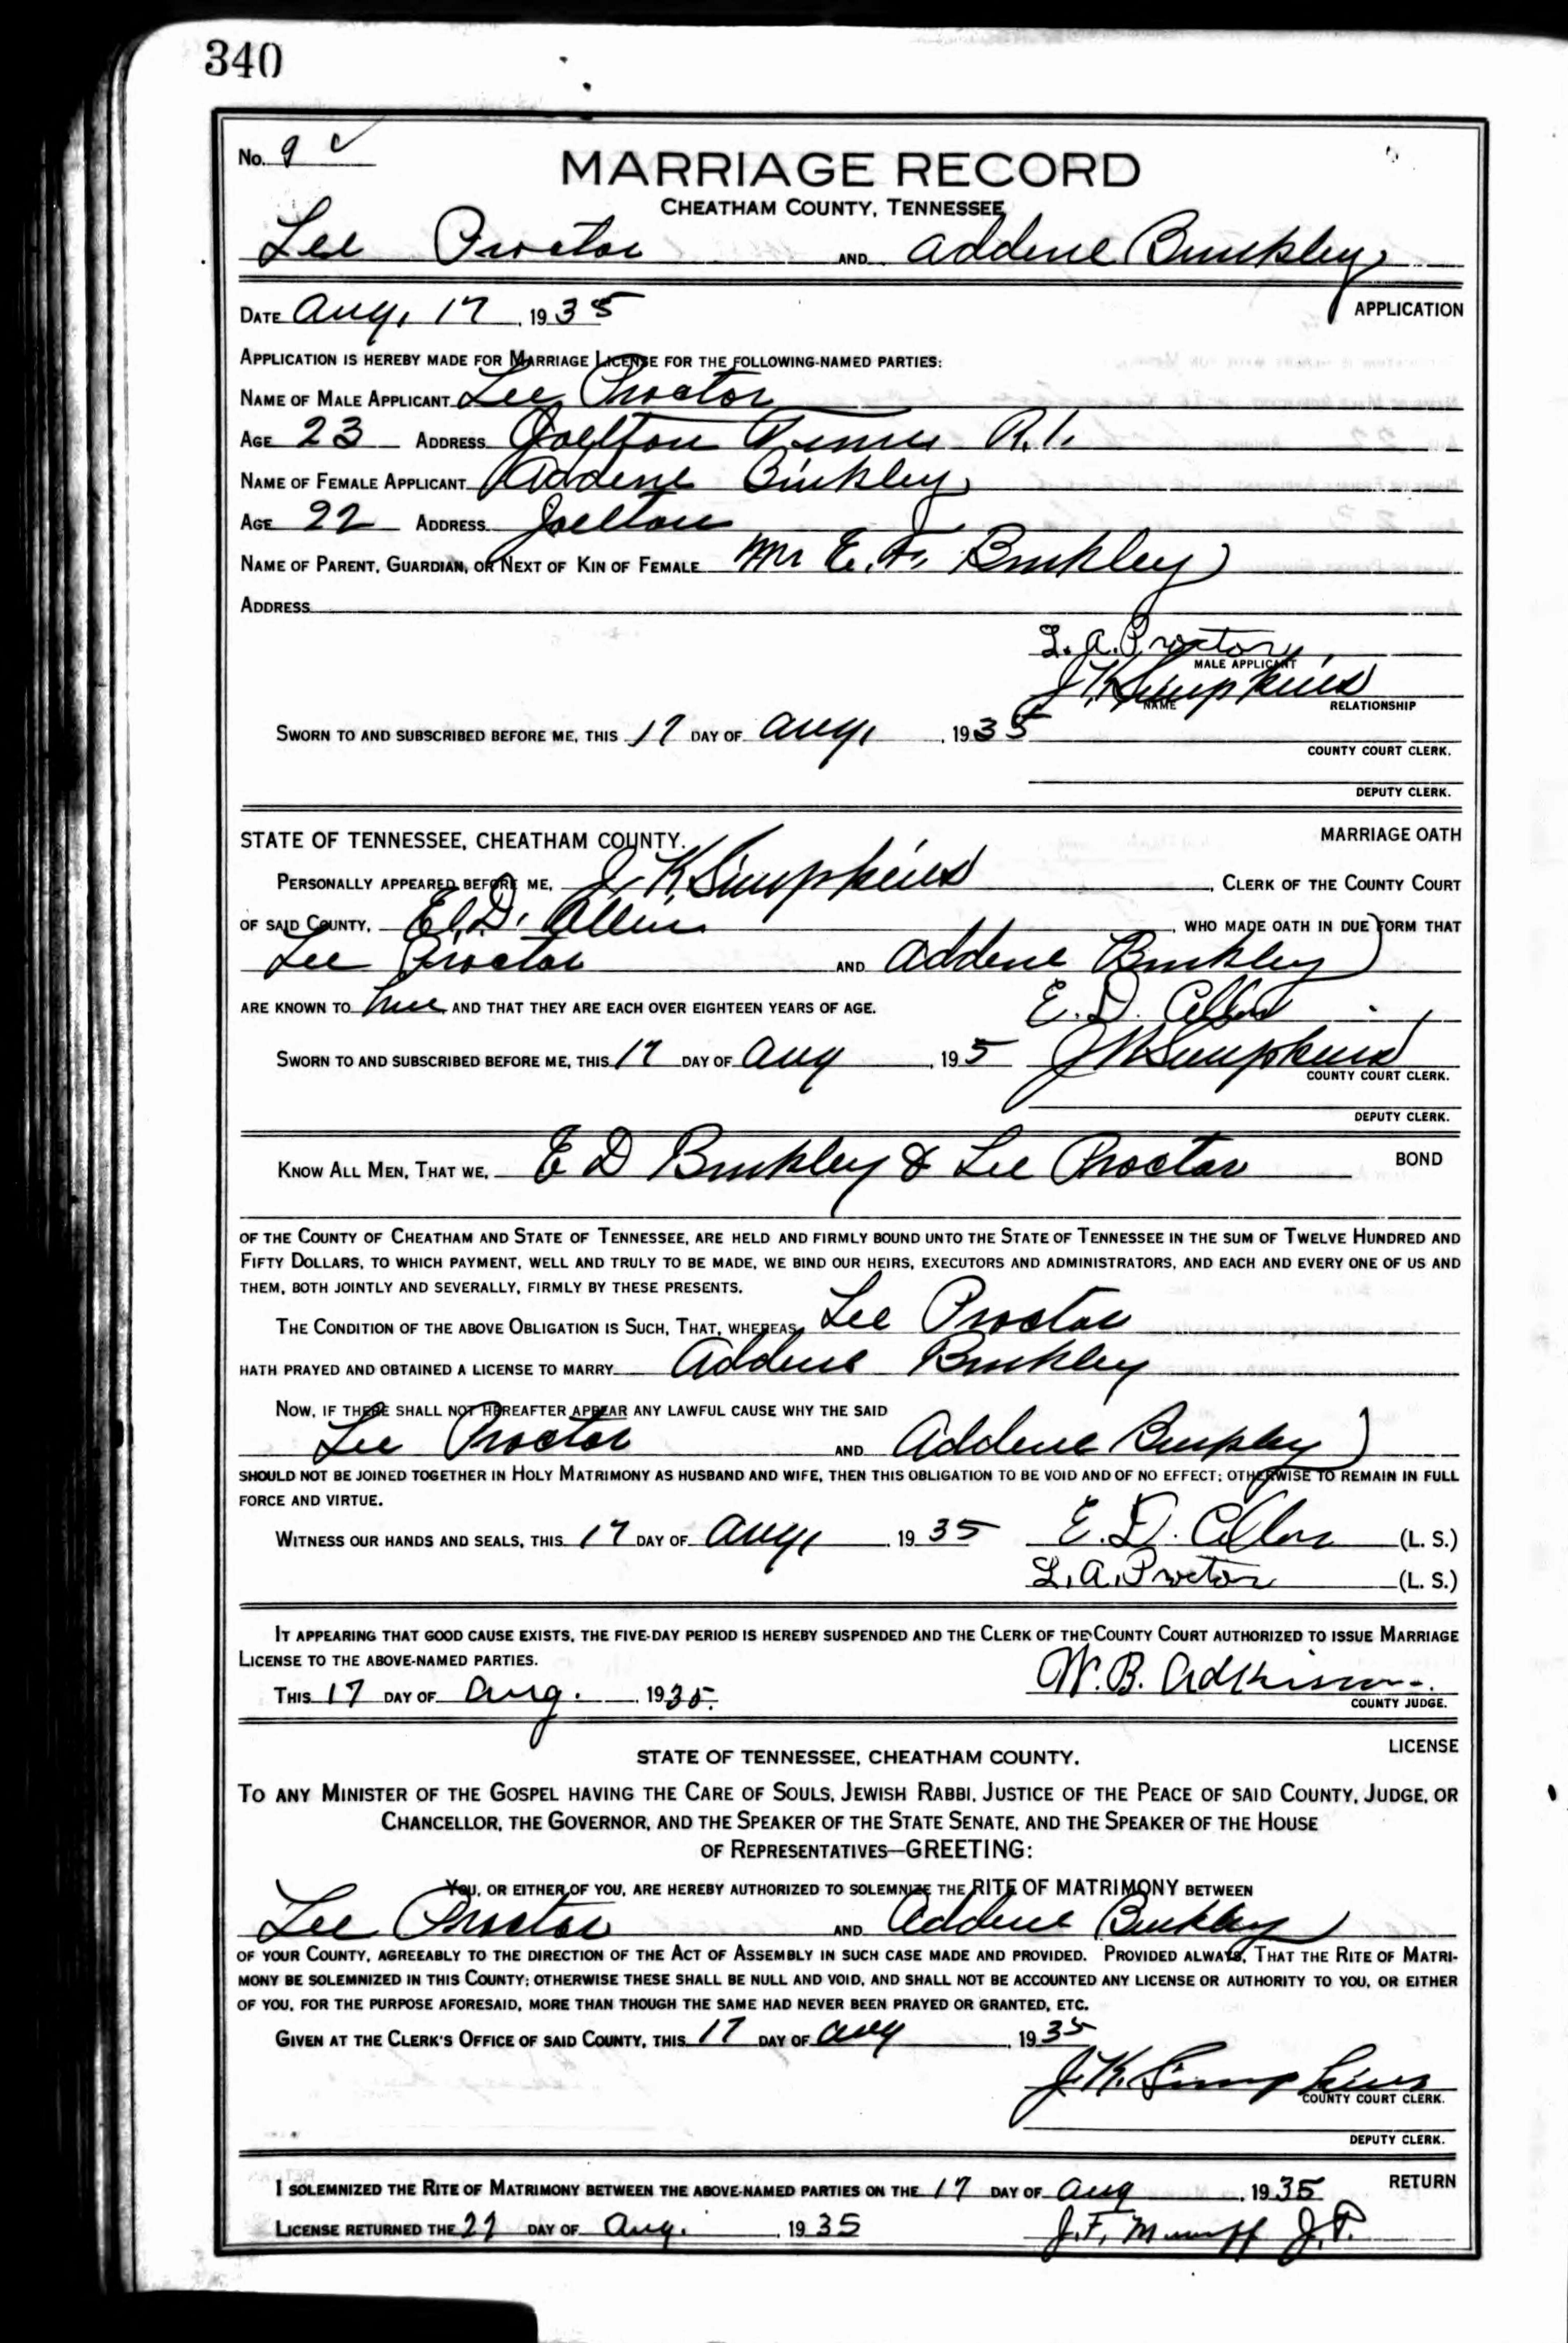 340
No. 9
MARRIAGE RECORD
CHEATHAM COUNTY, TENNESSEE
Lee Proctor AND Addene Binkley
DATE Aug. 17, 1935 APPLICATION
APPLICATION IS HEREBY MADE FOR MARRIAGE LICENSE FOR THE FOLLOWING-NAMED PARTIES:
NAME OF MALE APPLICANT Lee Proctor
AGE 23 ADDRESS Joelton Tenn R.1.
NAME OF FEMALE APPLICANT Addene Binkley
AGE 22 ADDRESS Joelton
NAME OF PARENT, GUARDIAN, OR NEXT OF KIN OF FEMALE Mr E. F. Binkley
ADDRESS
L. A. Proctor
MALE APPLICANT
J K Simpkins
NAME RELATIONSHIP
SWORN TO AND SUBSCRIBED BEFORE ME, THIS 17 DAY OF Aug, 1935
COUNTY COURT CLERK.
DEPUTY CLERK.
STATE OF TENNESSEE, CHEATHAM COUNTY. MARRIAGE OATH
PERSONALLY APPEARED BEFORE ME, J. K Simpkins, CLERK OF THE COUNTY COURT
OF SAID COUNTY, E. D. Allen, WHO MADE OATH IN DUE FORM THAT
Lee Proctor AND Addene Binkley
ARE KNOWN TO AND THAT THEY ARE EACH OVER EIGHTEEN YEARS OF AGE.
E. D. Allen
SWORN TO AND SUBSCRIBED BEFORE ME, THIS 17 DAY OF Aug, 195 J K Simpkins
COUNTY COURT CLERK.
DEPUTY CLERK.
KNOW ALL MEN, THAT WE, E D Binkley & Lee Proctor BOND
OF THE COUNTY OF CHEATHAM AND STATE OF TENNESSEE, ARE HELD AND FIRMLY BOUND UNTO THE STATE OF TENNESSEE IN THE SUM OF TWELVE HUNDRED AND
FIFTY DOLLARS, TO WHICH PAYMENT, WELL AND TRULY TO BE MADE, WE BIND OUR HEIRS, EXECUTORS AND ADMINISTRATORS, AND EACH AND EVERY ONE OF US AND
THEM, BOTH JOINTLY AND SEVERALLY, FIRMLY BY THESE PRESENTS.
THE CONDITION OF THE ABOVE OBLIGATION IS SUCH, THAT, WHEREAS, Lee Proctor
HATH PRAYED AND OBTAINED A LICENSE TO MARRY Addene Binkley
NOW, IF THERE SHALL NOT HEREAFTER APPEAR ANY LAWFUL CAUSE WHY THE SAID
Lee Proctor AND Addene Binkley
SHOULD NOT BE JOINED TOGETHER IN HOLY MATRIMONY AS HUSBAND AND WIFE, THEN THIS OBLIGATION TO BE VOID AND OF NO EFFECT; OTHERWISE TO REMAIN IN FULL
FORCE AND VIRTUE.
WITNESS OUR HANDS AND SEALS, THIS 17 DAY OF Aug, 1935 E. D. Allen (L. S.)
L. A. Proctor (L. S.)
IT APPEARING THAT GOOD CAUSE EXISTS, THE FIVE-DAY PERIOD IS HEREBY SUSPENDED AND THE CLERK OF THE COUNTY COURT AUTHORIZED TO ISSUE MARRIAGE
LICENSE TO THE ABOVE-NAMED PARTIES.
THIS 17 DAY OF Aug. 1935. W. B. Adkisson
COUNTY JUDGE.
STATE OF TENNESSEE, CHEATHAM COUNTY. LICENSE
TO ANY MINISTER OF THE GOSPEL HAVING THE CARE OF SOULS, JEWISH RABBI, JUSTICE OF THE PEACE OF SAID COUNTY, JUDGE, OR
CHANCELLOR, THE GOVERNOR, AND THE SPEAKER OF THE STATE SENATE, AND THE SPEAKER OF THE HOUSE
OF REPRESENTATIVES—GREETING:
YOU, OR EITHER OF YOU, ARE HEREBY AUTHORIZED TO SOLEMNIZE THE RITE OF MATRIMONY BETWEEN
Lee Proctor AND Addene Binkley
OF YOUR COUNTY, AGREEABLY TO THE DIRECTION OF THE ACT OF ASSEMBLY IN SUCH CASE MADE AND PROVIDED. PROVIDED ALWAYS, THAT THE RITE OF MATRI-
MONY BE SOLEMNIZED IN THIS COUNTY; OTHERWISE THESE SHALL BE NULL AND VOID, AND SHALL NOT BE ACCOUNTED ANY LICENSE OR AUTHORITY TO YOU, OR EITHER
OF YOU, FOR THE PURPOSE AFORESAID, MORE THAN THOUGH THE SAME HAD NEVER BEEN PRAYED OR GRANTED, ETC.
GIVEN AT THE CLERK'S OFFICE OF SAID COUNTY, THIS 17 DAY OF Aug, 1935
J. K. Simpkins
COUNTY COURT CLERK.
DEPUTY CLERK.
I SOLEMNIZED THE RITE OF MATRIMONY BETWEEN THE ABOVE-NAMED PARTIES ON THE 17 DAY OF Aug, 1935 RETURN
LICENSE RETURNED THE DAY OF Aug., 1935 J. F. J. P.